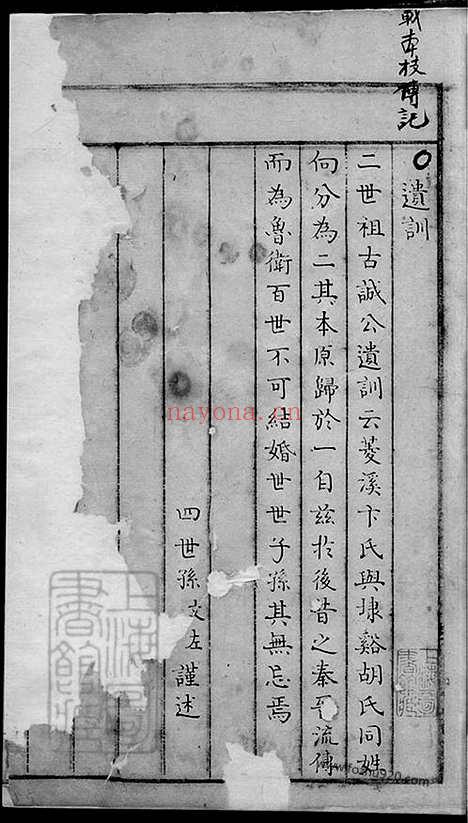 車枝傳記
○遺訓
二世祖古誠公遺訓云菱溪卞氏與埭谿胡氏同姓
向分為二其本原歸於一自茲扵後昔之秦流傳
而為魯衛百世不可結婚世世子孫其無忘焉
四世孫文謹述
上海圖書館藏
上海圖書館藏
nayona.cn